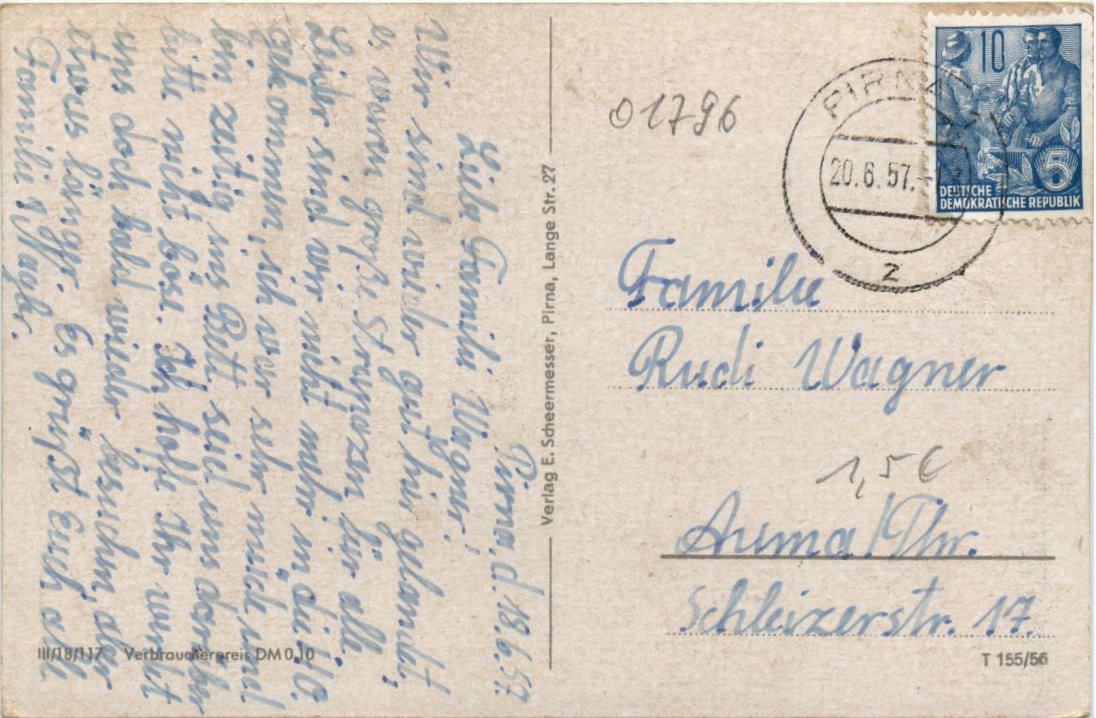 Pirna, d. 18.6.57.
Liebe Familie Wagner!
Wir sind wieder gut hier gelandet,
es waren große Strapazen für alle.
Leider sind wir nicht mehr in die 10.
gekommen, ich war sehr müde und
bin zeitig ins Bett, seid uns darüber
bitte nicht böse. Ich hoffe Ihr werdet
uns doch bald wieder besuchen, aber
etwas länger. Es grüßt Euch alle
Familie
III/18/117 Verbraucherpreis DM 0,10
Verlag E. Scheermesser, Pirna, Lange Str. 27
01796
PIRNA
20.6.57.
2
10
5
DEUTSCHE
DEMOKRATISCHE REPUBLIK
Familie
Rudi Wagner
1,5€
Auma/Thr.
Schleizerstr. 17.
T 155/56